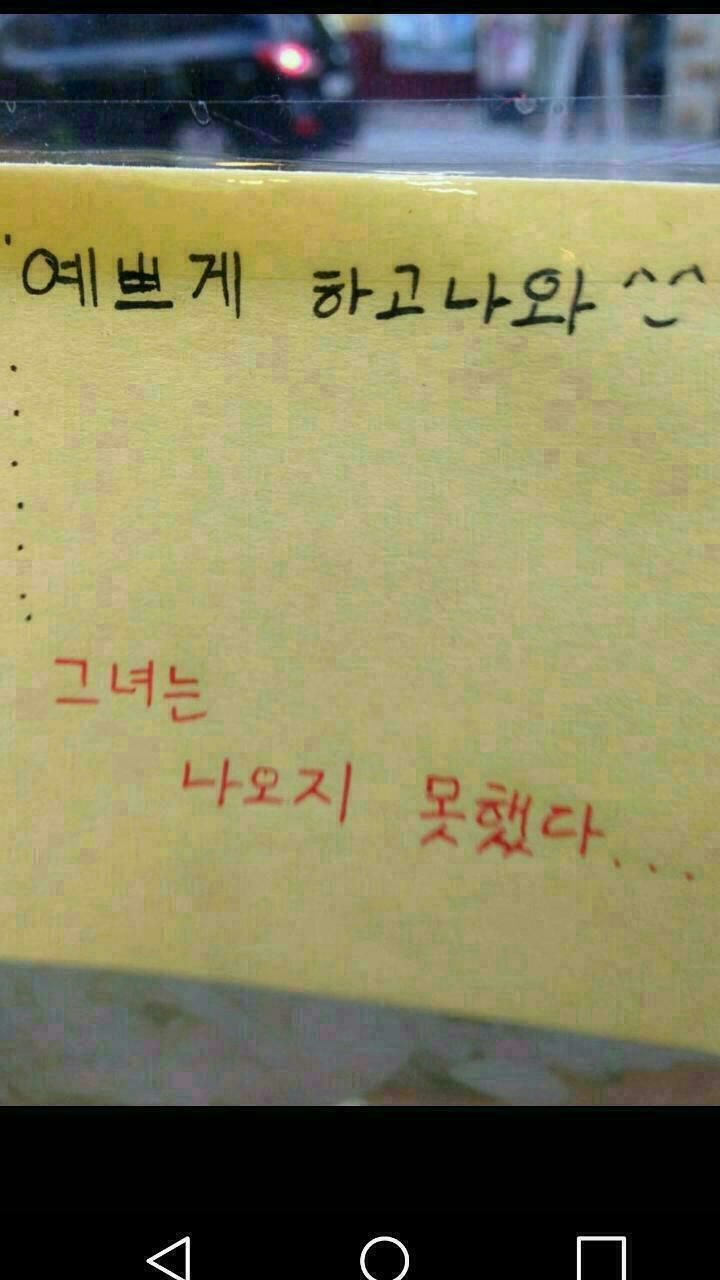 '예쁘게 하고나와 ^^
.
.
.
.
.
.
.
그녀는
나오지 못했다...